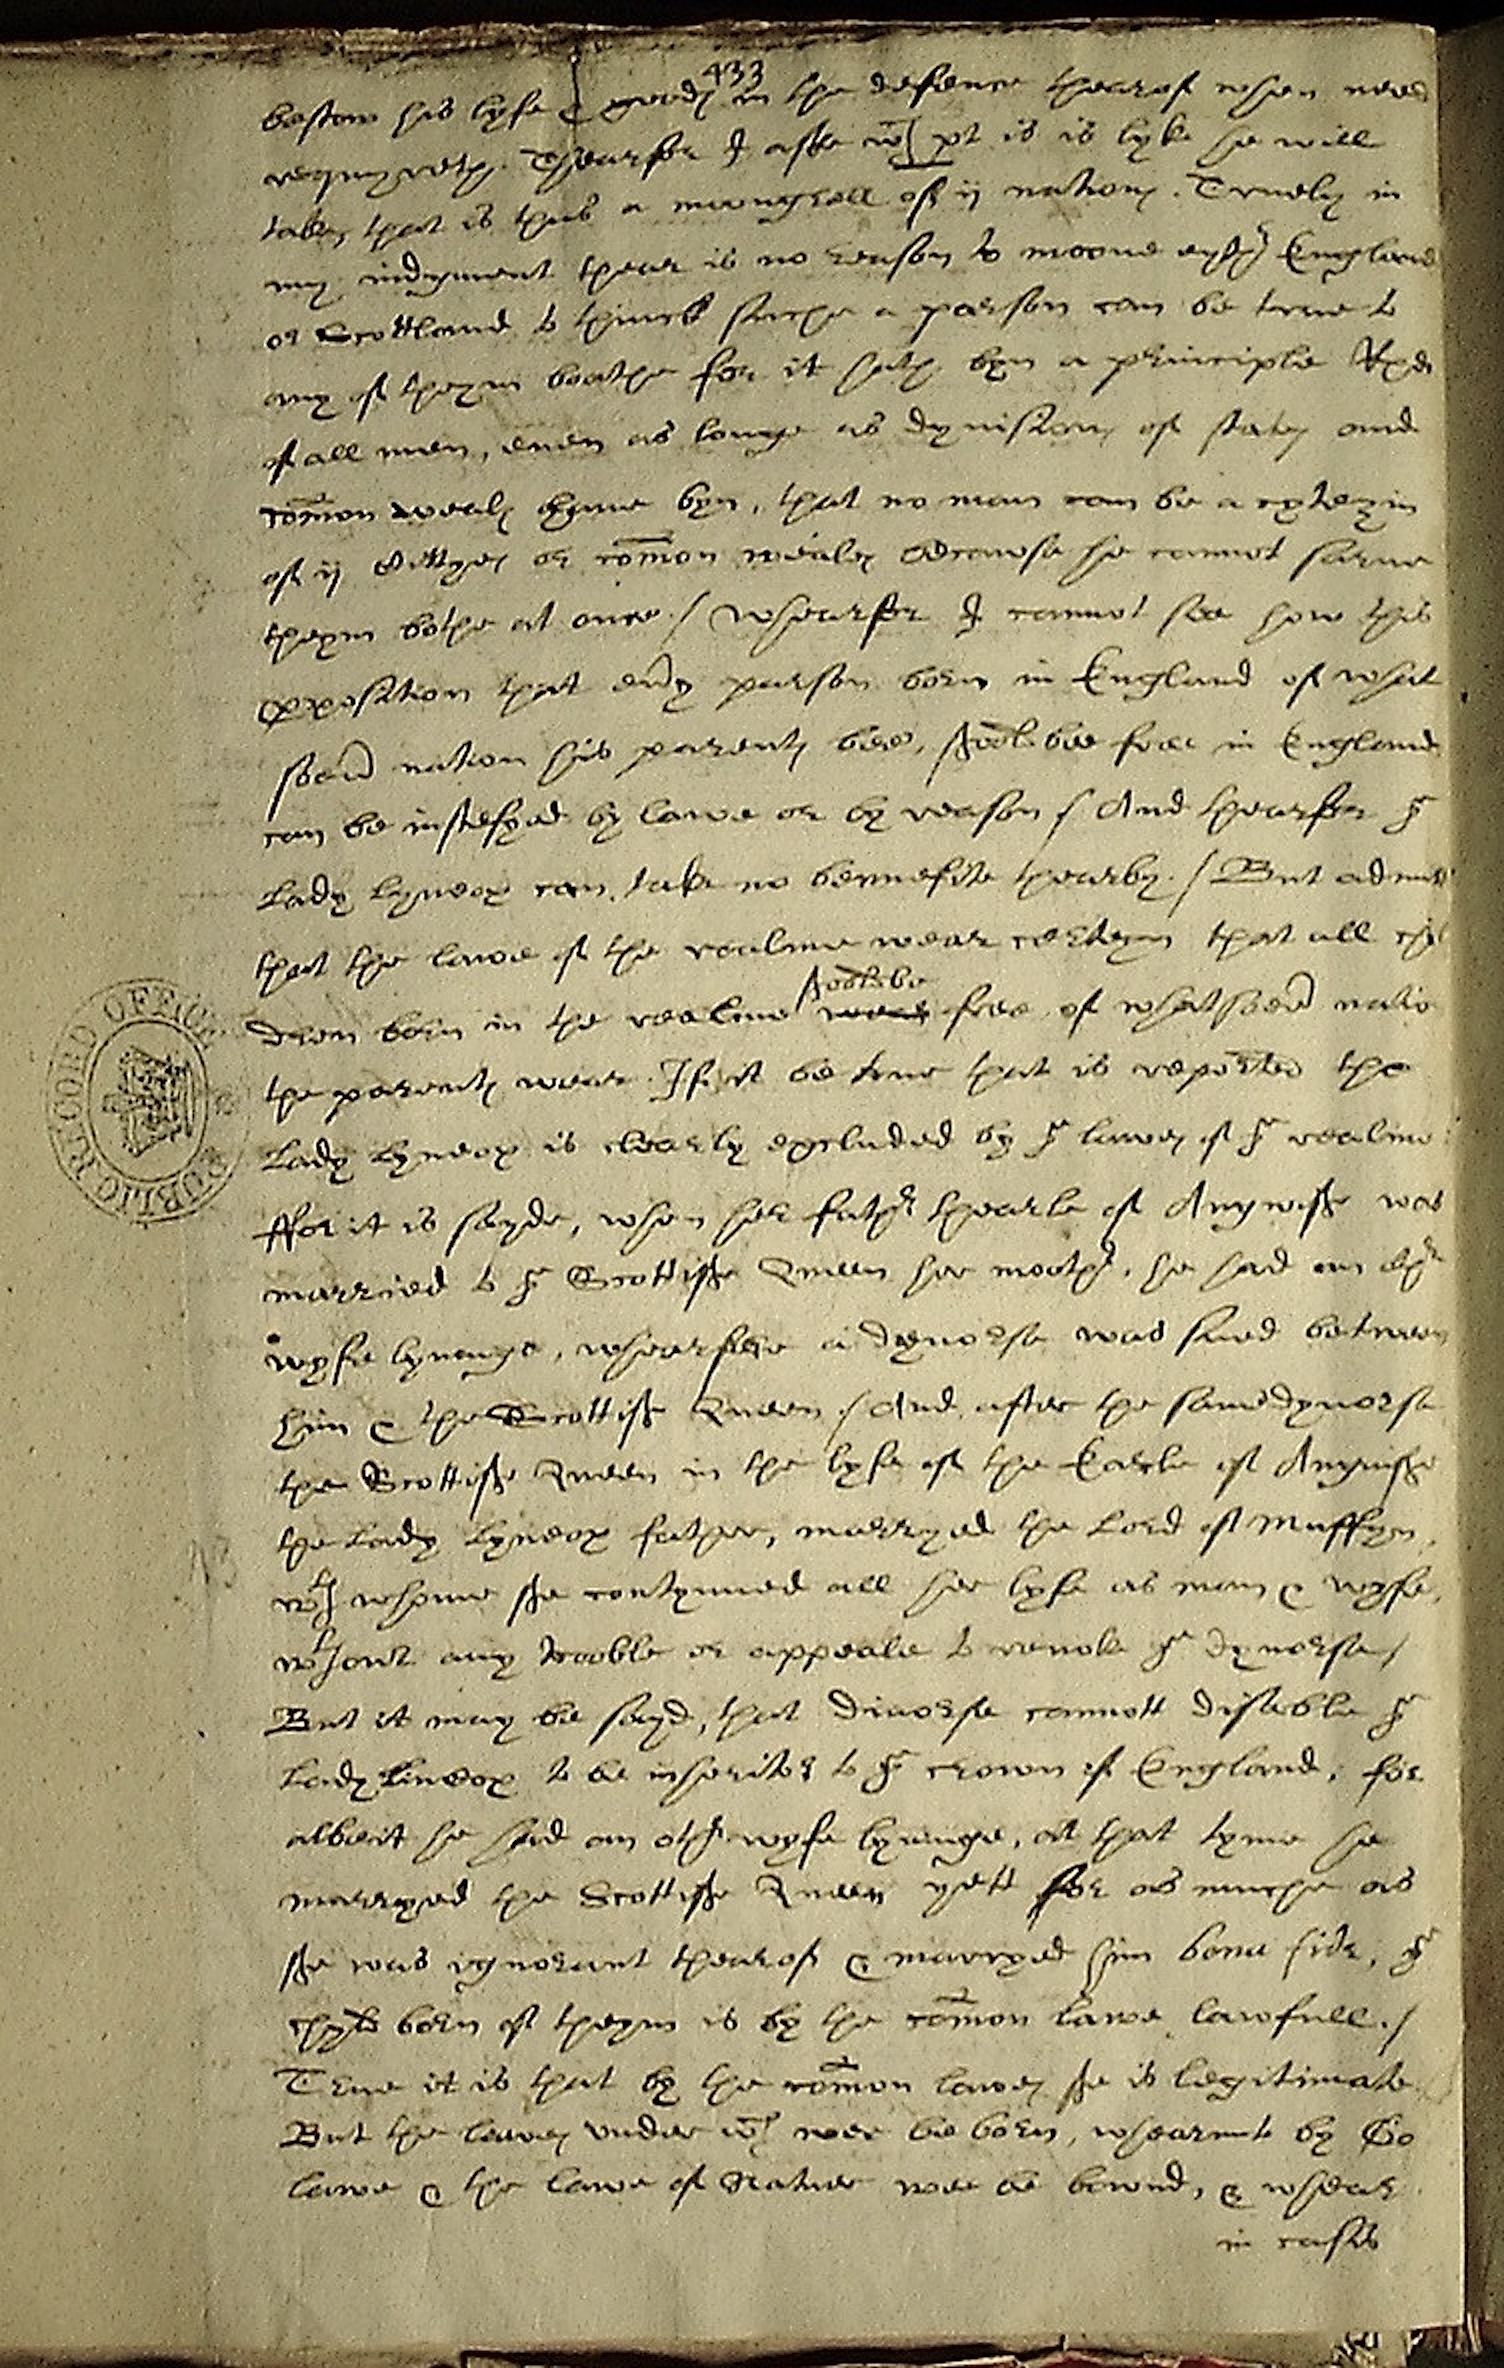 433
bestow his lyfe & goodes in the defence thearof when need
requyreth. Thearfor I aske wch pt is is lyke he will
take, that is thus a moongrell of ij nations. Truely in
my iudgment thear is no reason to moove eyther England
or Scottland to thinck suche a parson can be true to
any of theym boathe for it hath byn a principle
of all men, even as longe as dyvisions of states and
comon weales have byn, that no man can be a cytezyn
of ij cittyes or comon weales because he cannot serve
theym bothe at once / whearfor I cannot see how this
position that every parson born in England of what
soever nation his parents bee, shoolde bee free in England
can be iustefyed by lawe or by reason / And thearfor ye
Lady Lyneox can take no bennefite thearby. / But admitt
that the lawe of the realme wear certeyn that all chil
shoolde be
dren born in the realme wear free of whatsoever natio
the parents wear. If it be true that is reported the
Lady Lyneox is clearly excluded by ye lawes of ye realme:
ffor it is sayde, when her father thearle of Angwishe was
married to ye Scottishe Queen her moother, he had an other
wyfe lyvenge, whearfore a dyvorse was sued between
him & the Scottish Queen / And after the same dyvorse
the Scottishe Queen in the lyfe of the Earle of Anguishe
the Lady Lyneox father, marryed the Lord of Muffyn,
wth whome she contynued all her lyfe as man & wyfe,
wthowt any trooble or appeale to revoke ye dyvorse /
But it may be sayd, that divorse cannott disable ye
Lady Lineox to be inheritor to ye crown of England, for
albeit he had an other wyfe lyvinge, at that tyme he
marryed the Scottishe Queen yett for as muche as
she was ignorant thearof & marryed him bona fide, ye
chyld born of theym is by the comon lawe lawfull. /
True it is that by the comon lawes she is legitimate
But the lawes under wch wee be born, whearunto by Go
lawe & the lawe of Nature wee be bownd, & whear
in cases
PUBLIC RECORD OFFICE